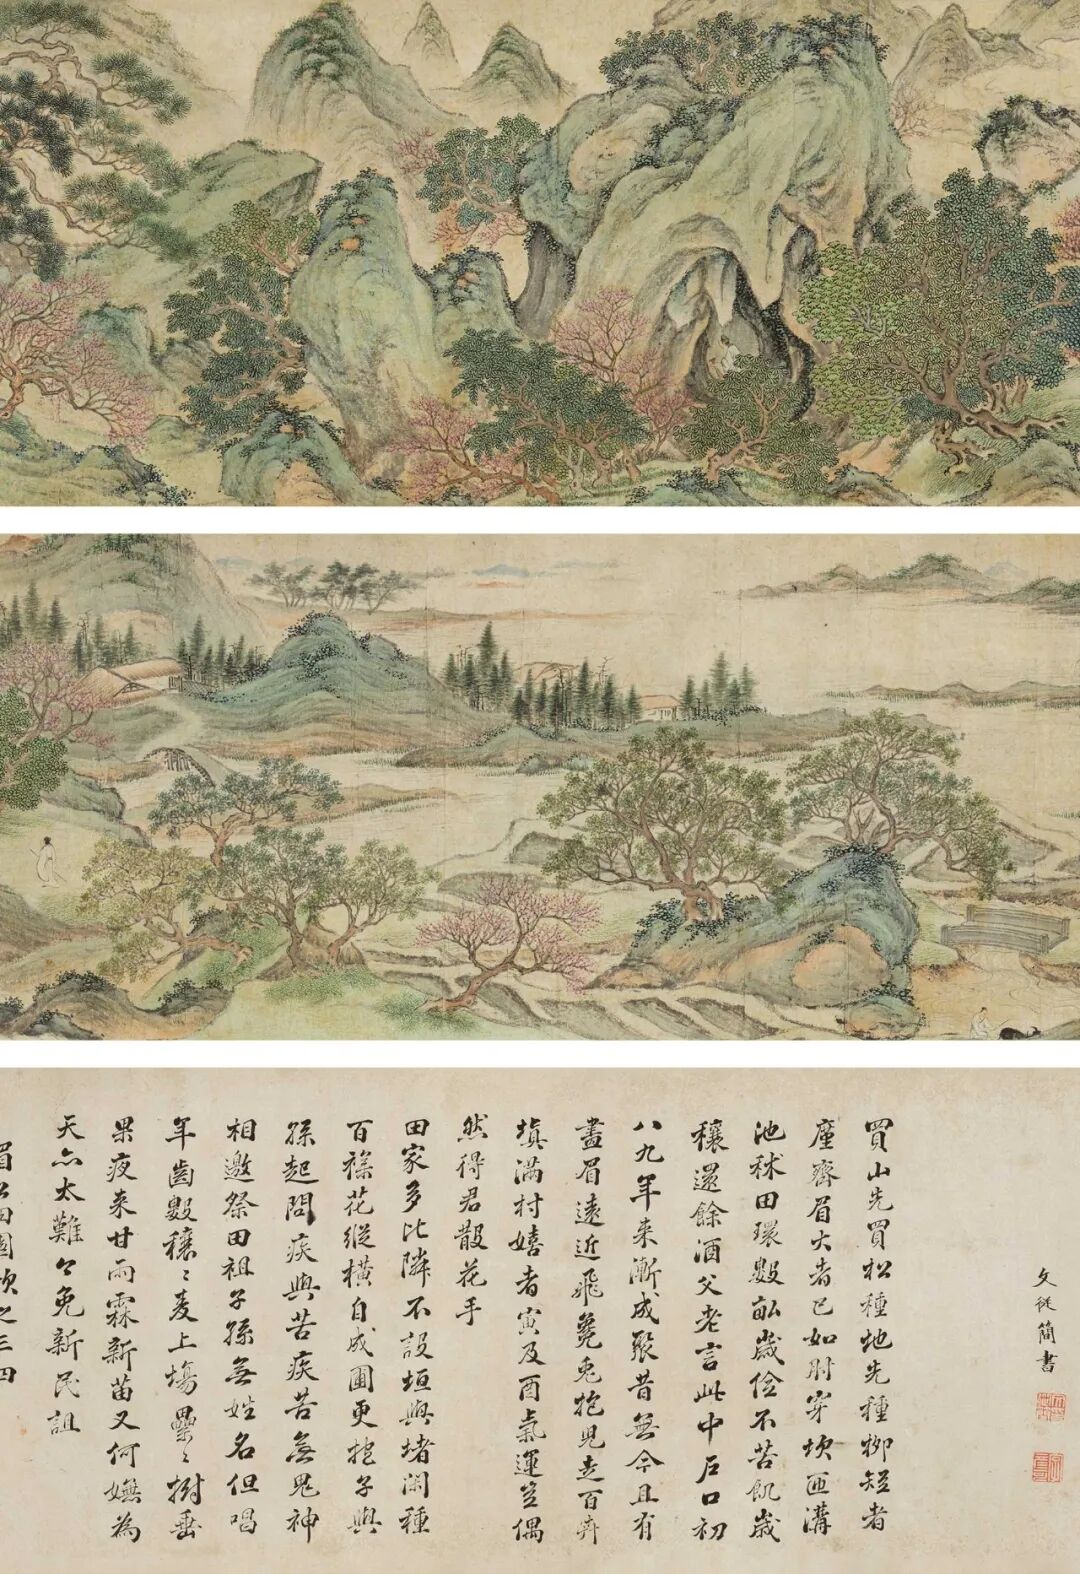 文從簡書
買山先買松種地先種柳短者
座齊眉大者已如肘穿坎匝溝
池秫田環數畝歲儉不苦飢歲
穰還餘酒父老言此中戶口初
八九年來漸成聚昔無今且有
畫眉遠近飛鳧兔抱兒走百卉
填滿村嬉者寅及酉氣運豈偶
然得君散花手
田家多比隣不設垣與堵閑種
百花縱橫自成圃更抱子與
孫起問疾與苦疾苦無鬼神
相邀祭田祖子孫無姓名但唱
年齒數穰〻麥上場纍〻樹垂
果夜來甘雨霖新苗又何嫵為
天亦太難〻免新民詛